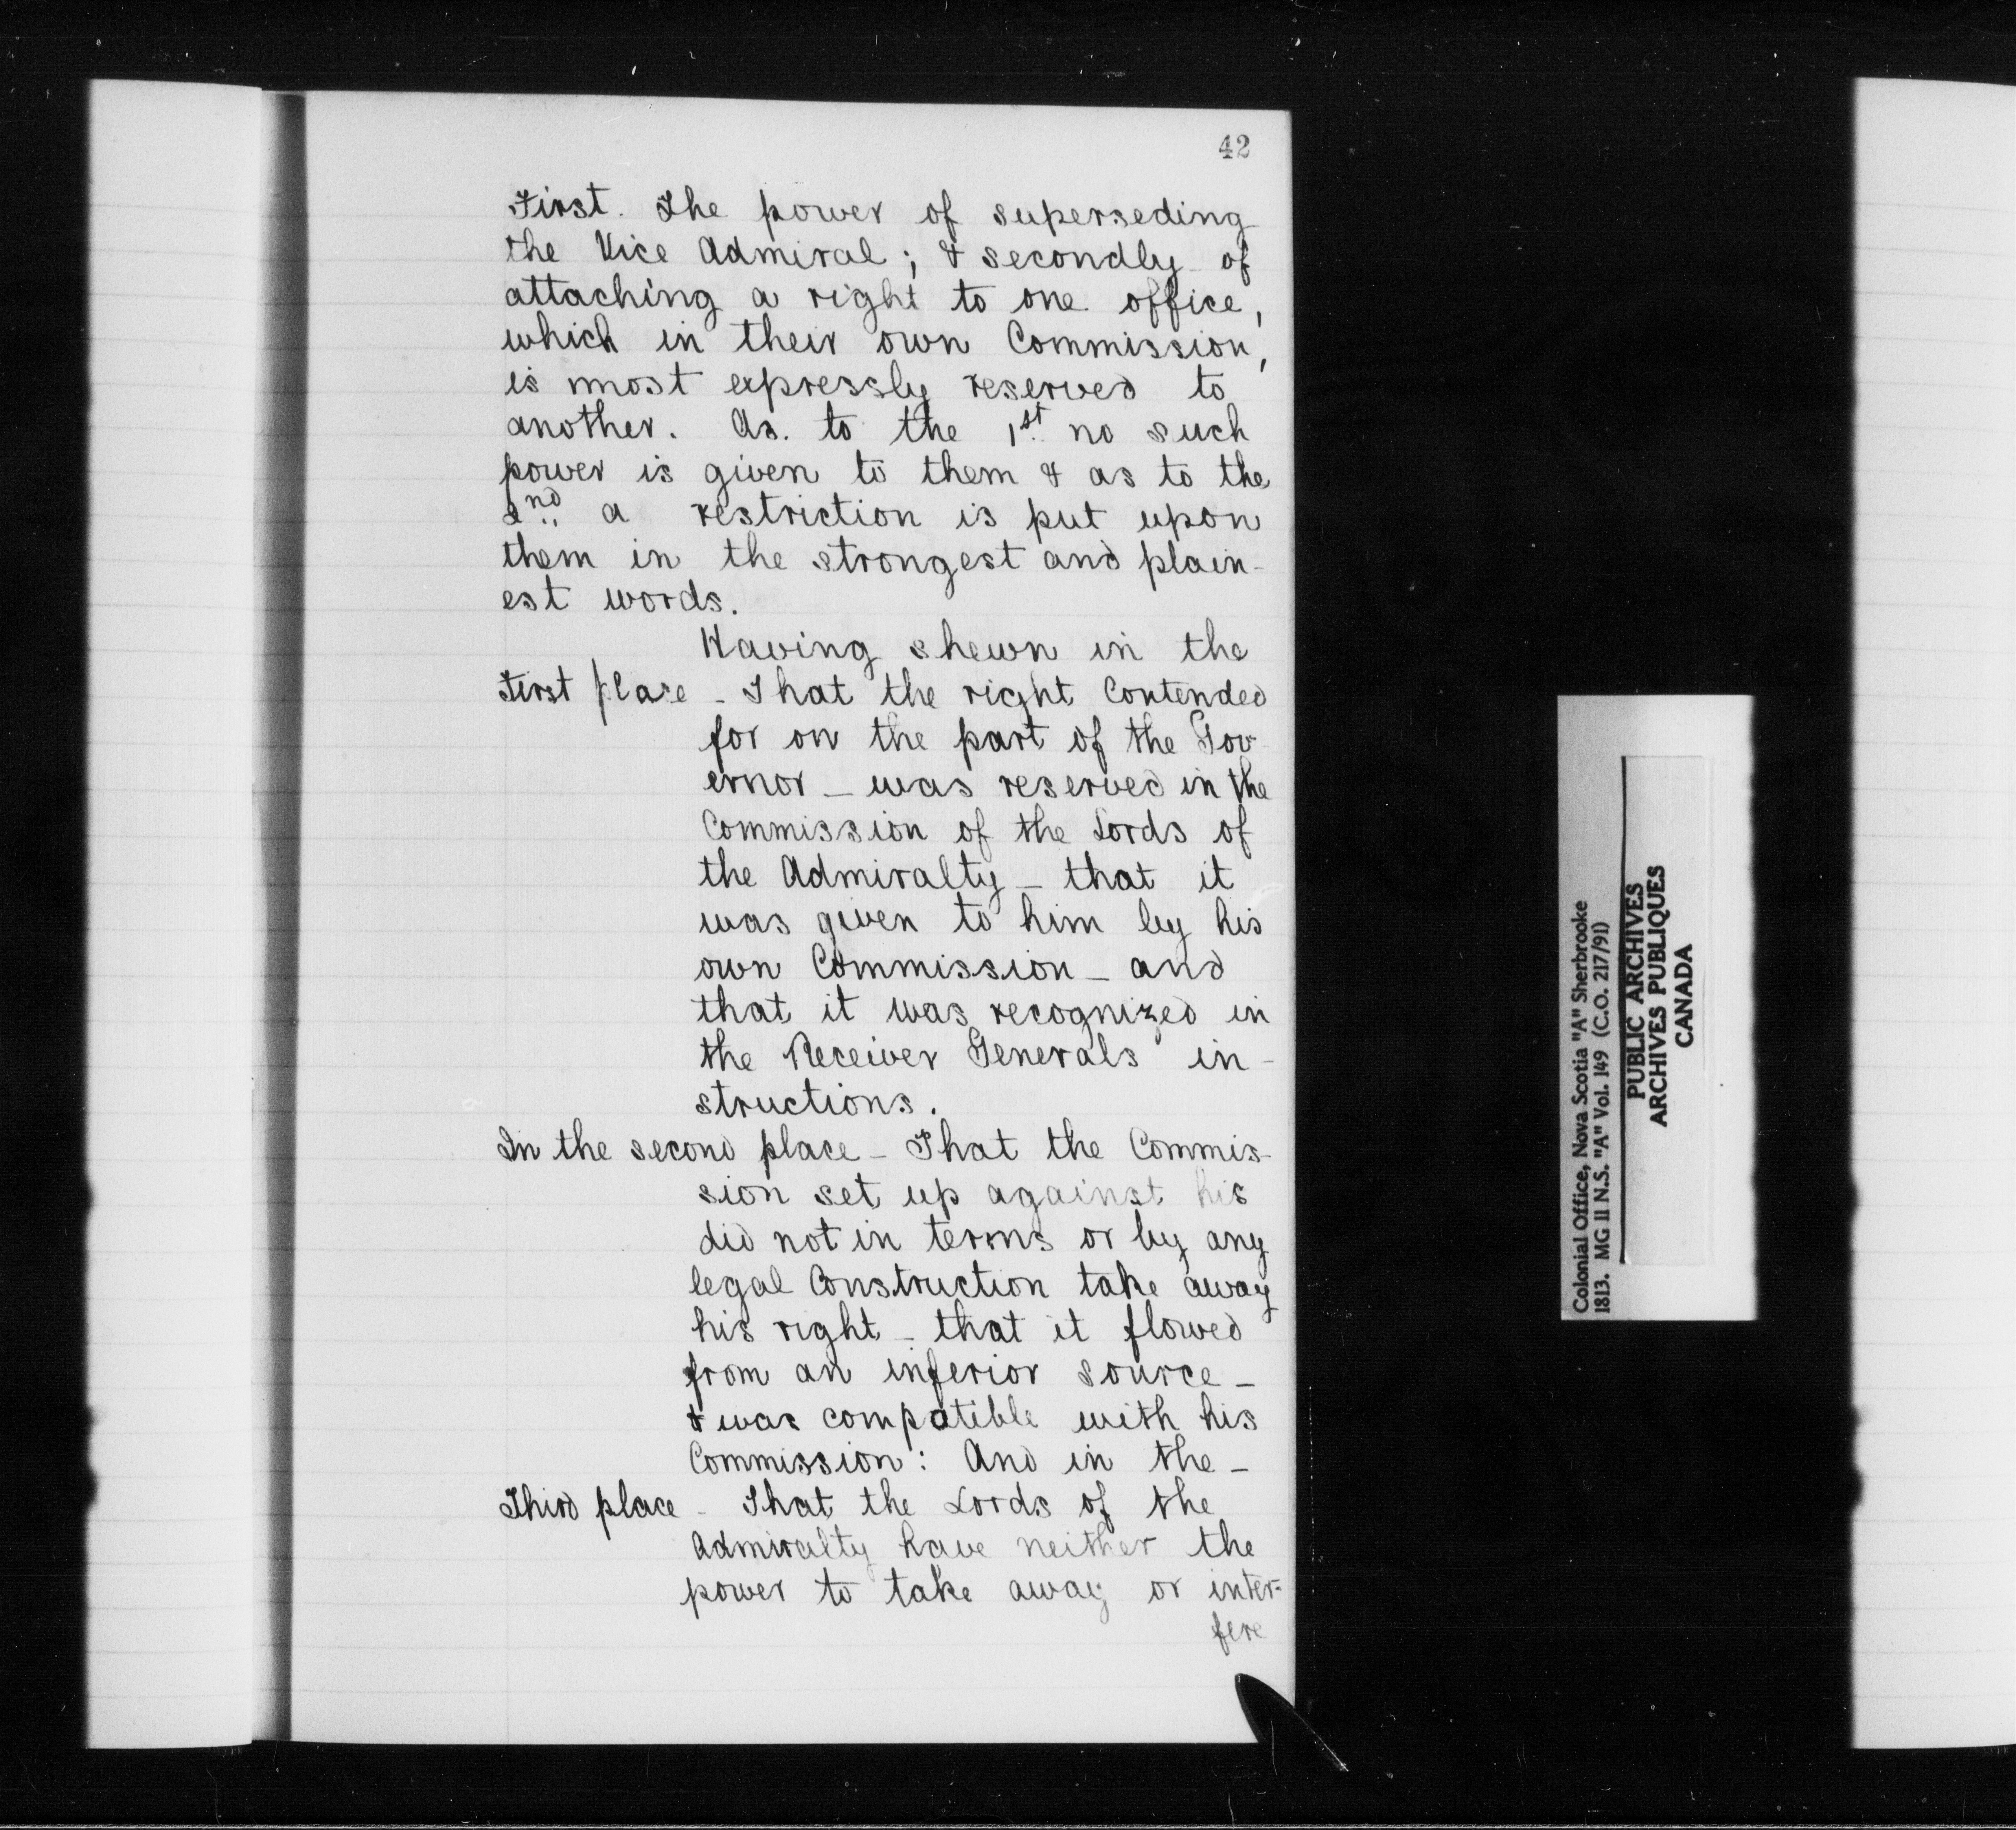 42
First. The power of superseding
the Vice Admiral; & secondly of
attaching a right to one office,
which in their own Commission,
is most expressly reserved to
another. As. to the 1st no such
power is given to them & as to the
2nd a restriction is put upon
them in the strongest and plain-
est words.
Having shewn in the
First place - That the right Contended
for on the part of the Gov
ernor - was reserved in the
Commission of the Lords of
the Admiralty - that it
was given to him by his
own Commission - and
that it was recognized in
the Receiver Generals in-
structions.
In the second place - That the Commis-
sion set up against his
did not in terms or by any
legal Construction take away
his right - that it flowed
from an inferior source -
& was compatible with his
Commission: And in the -
Third place - That the Lords of the
Admiralty have neither the
power to take away or inter-
fere
Colonial Office, Nova Scotia "A" Sherbrooke
1813. MG 11 N.S. "A" Vol. 149 (C.O. 217/91)
PUBLIC ARCHIVES
ARCHIVES PUBLIQUES
CANADA